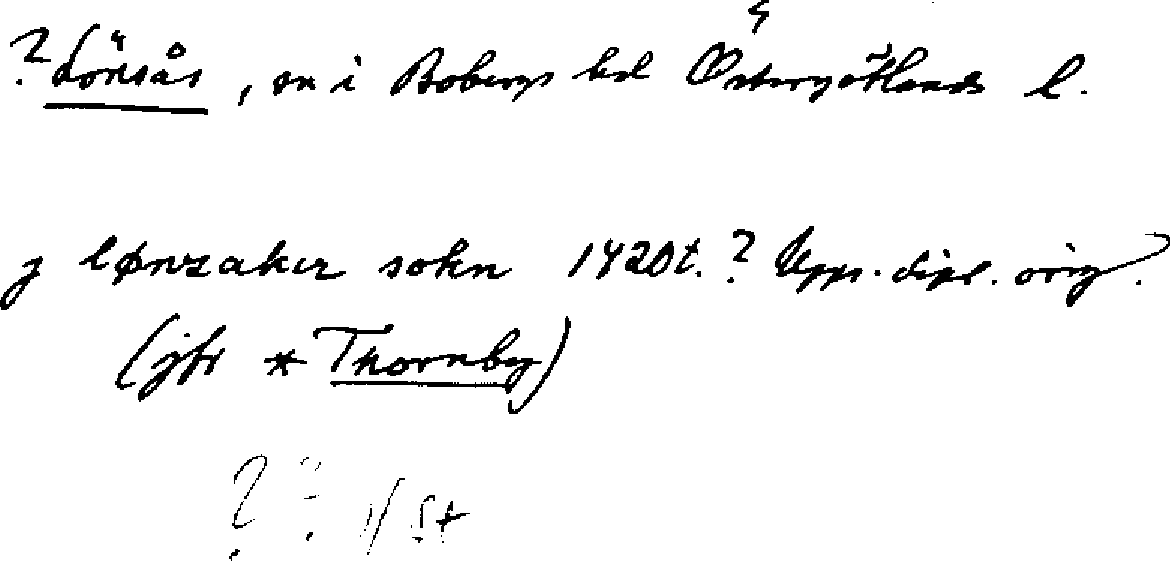 ? Lönsås, sn i Bobergs hd Östergötlands l.
j lønsaker sokn 1420t.? Upps. dipl. orig?
(jfr * Thornby)
? ?